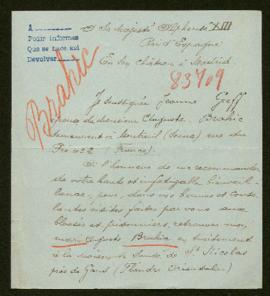 A
Pedir informes
Que se hace aquí
Devolver
A Sa Majesté Alphonse XIII
Roi d'Espagne
En son château à Madrid
83709
Brahic
Je soussignée Jeanne Graff
épouse de Auguste Brahic
demeurant à Montreuil (Seine) rue du
Pré 22 (France)
Ai l'honneur de me recommander
de votre haute et infatigable bienveil-
lance, pour, dans vos bonnes et
visites faites par vous aux
blessés et prisonniers, retrouver mon
mari Auguste Brahic en traitement
à la Maison de Santé de St Nicolas
près de Gand (Flandre Orientale)